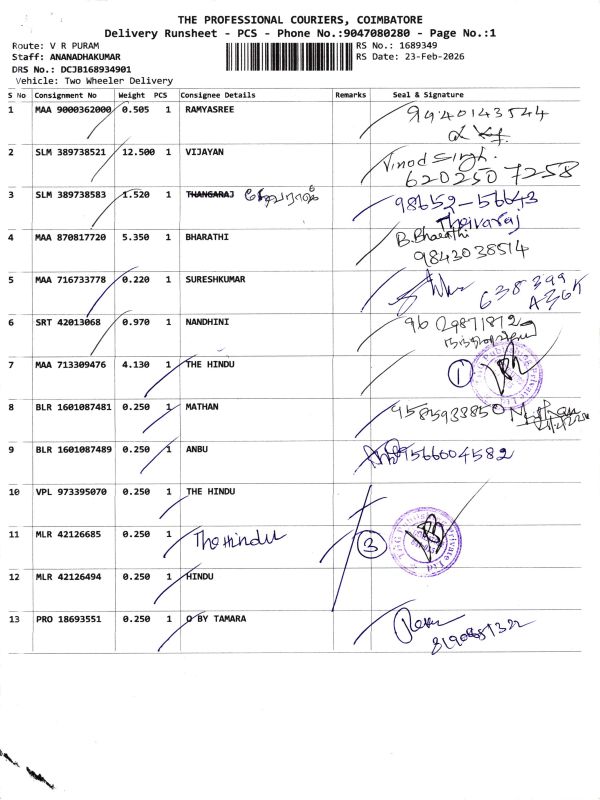 THE PROFESSIONAL COURIERS, COIMBATORE
Delivery Runsheet - PCS - Phone No.:9047080280 - Page No.:1
Route: V R PURAM
RS No.: 1689349
Staff: ANANADHAKUMAR
RS Date: 23-Feb-2026
DRS No.: DCJB168934901
Vehicle: Two Wheeler Delivery
S No Consignment No Weight PCS Consignee Details Remarks Seal & Signature
1 MAA 9000362000 0.505 1 RAMYASREE 9940143544
2 SLM 389738521 12.500 1 VIJAYAN Vinod Singh.
6202507258
3 SLM 389738583 1.520 1 THANGARAJ 98652-56643
4 MAA 870817720 5.350 1 BHARATHI B.Bharathi
9843038514
5 MAA 716733778 0.220 1 SURESHKUMAR 638399
6 SRT 42013068 0.970 1 NANDHINI
7 MAA 713309476 4.130 1 THE HINDU 1
8 BLR 1601087481 0.250 1 MATHAN 9585933850
9 BLR 1601087489 0.250 1 ANBU 9566004582
10 VPL 973395070 0.250 1 THE HINDU
11 MLR 42126685 0.250 1 The Hindu 3
12 MLR 42126494 0.250 1 HINDU
13 PRO 18693551 0.250 1 O BY TAMARA